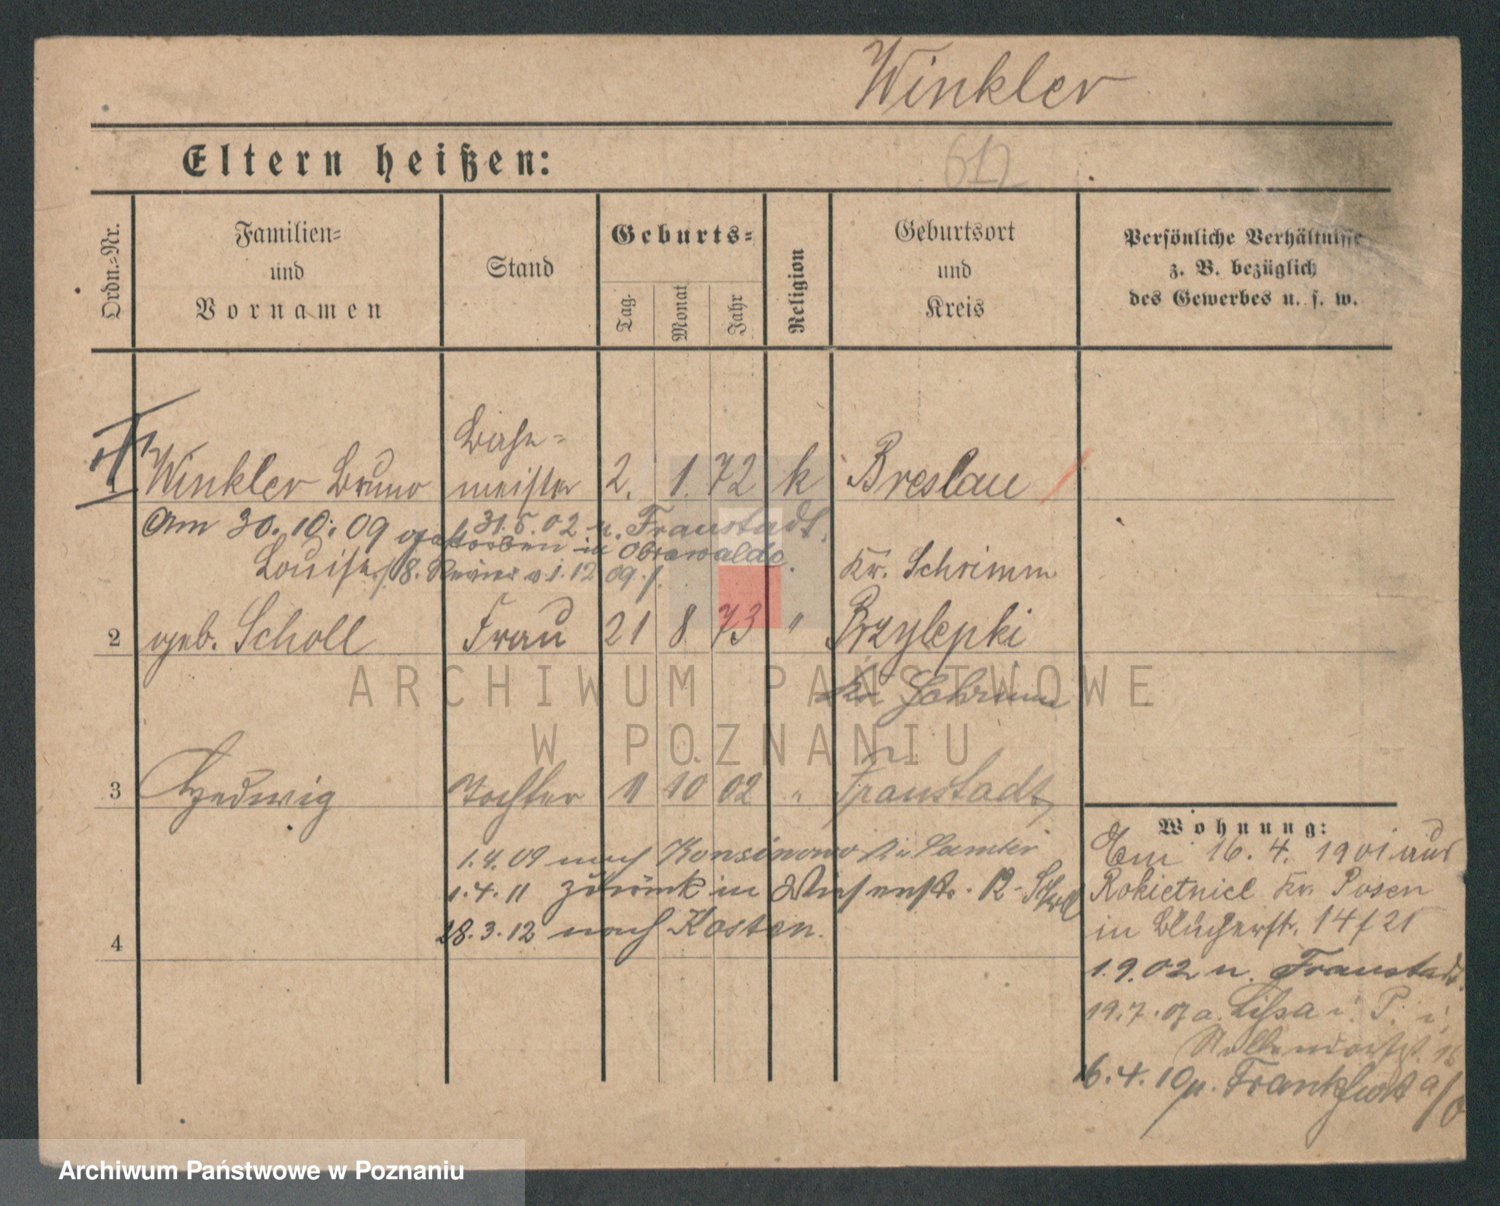 Winkler
612
Eltern heißen:
Ordn.=Nr.
Familien=
und
Vornamen
Stand
Geburts=
Tag.
Monat
Jahr
Religion
Geburtsort
und
Kreis
Persönliche Verhältnisse
z. B. bezüglich
des Gewerbes u. s. w.
Winkler Bruno
meister
2. 1. 72 k Breslau
Am 30. 10. 09 gestorben in Obrawalde.
31.5.02 n. Fraustadt.
Louise
Kr. Schrimm
2 geb. Scholl Frau 21 8 73 " Przylepki
Kr Schrimm
3 Hedwig Tochter 11 10 02 " Fraustadt
1.4.09 nach
1.4.11 zurück in 12
4
28.3.12 nach Kosten.
Wohnung:
Em 16. 4. 1901 aus
Rokietnice Kr. Posen
in Blücherstr. 14
1.9.02 n. Fraustadt.
19.7. Lissa i. P. i.
6.4.10 n. Frankfurt a/O
ARCHIWUM PAŃSTWOWE
W POZNANIU
Archiwum Państwowe w Poznaniu